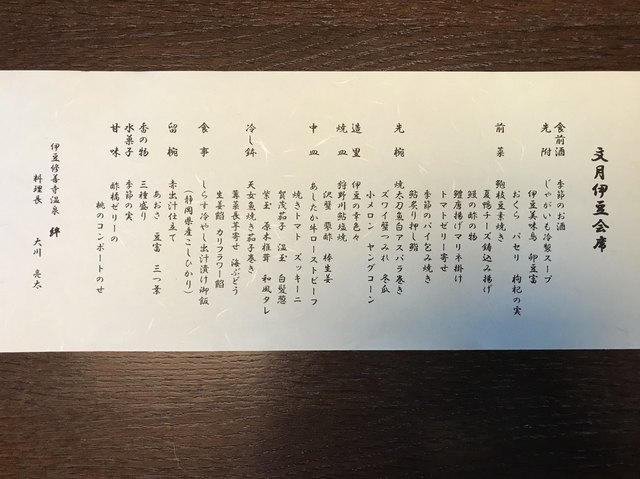 文月伊豆会席
食前酒 季節のお酒
先附 じゃがいも冷製スープ
伊豆美味鳥 卯豆富
おくら パセリ 枸杞の実
前菜 鮑枝豆素焼き
夏鴨チーズ鋳込み揚げ
鰻の酢の物
鱧唐揚げマリネ掛け
トマトゼリー寄せ
季節のパイ包み焼き
鮎炙り押し鮨
先椀 焼太刀魚白アスパラ巻き
ズワイ蟹つみれ 冬瓜
小メロン ヤングコーン
造里 伊豆の幸色々
焼皿 狩野川鮎塩焼
沢蟹 蓼酢 棒生姜
中皿 あしたか牛ローストビーフ
焼きトマト ズッキーニ
賀茂茄子 温玉 白髪葱
紫玉 原木椎茸 和風タレ
冷し鉢 天女魚焼き茄子巻き
蓴菜長芋寄せ 海ぶどう
生姜餡 カリフラワー餡
食事 しらす冷やし出汁漬け御飯
(静岡県産こしひかり)
留椀 赤出汁仕立て
あおさ 豆富 三つ葉
香の物 三種盛り
水菓子 季節の実
甘味 酢橘ゼリーの
桃のコンポートのせ
伊豆修善寺温泉 絆
料理長 大川 亮太